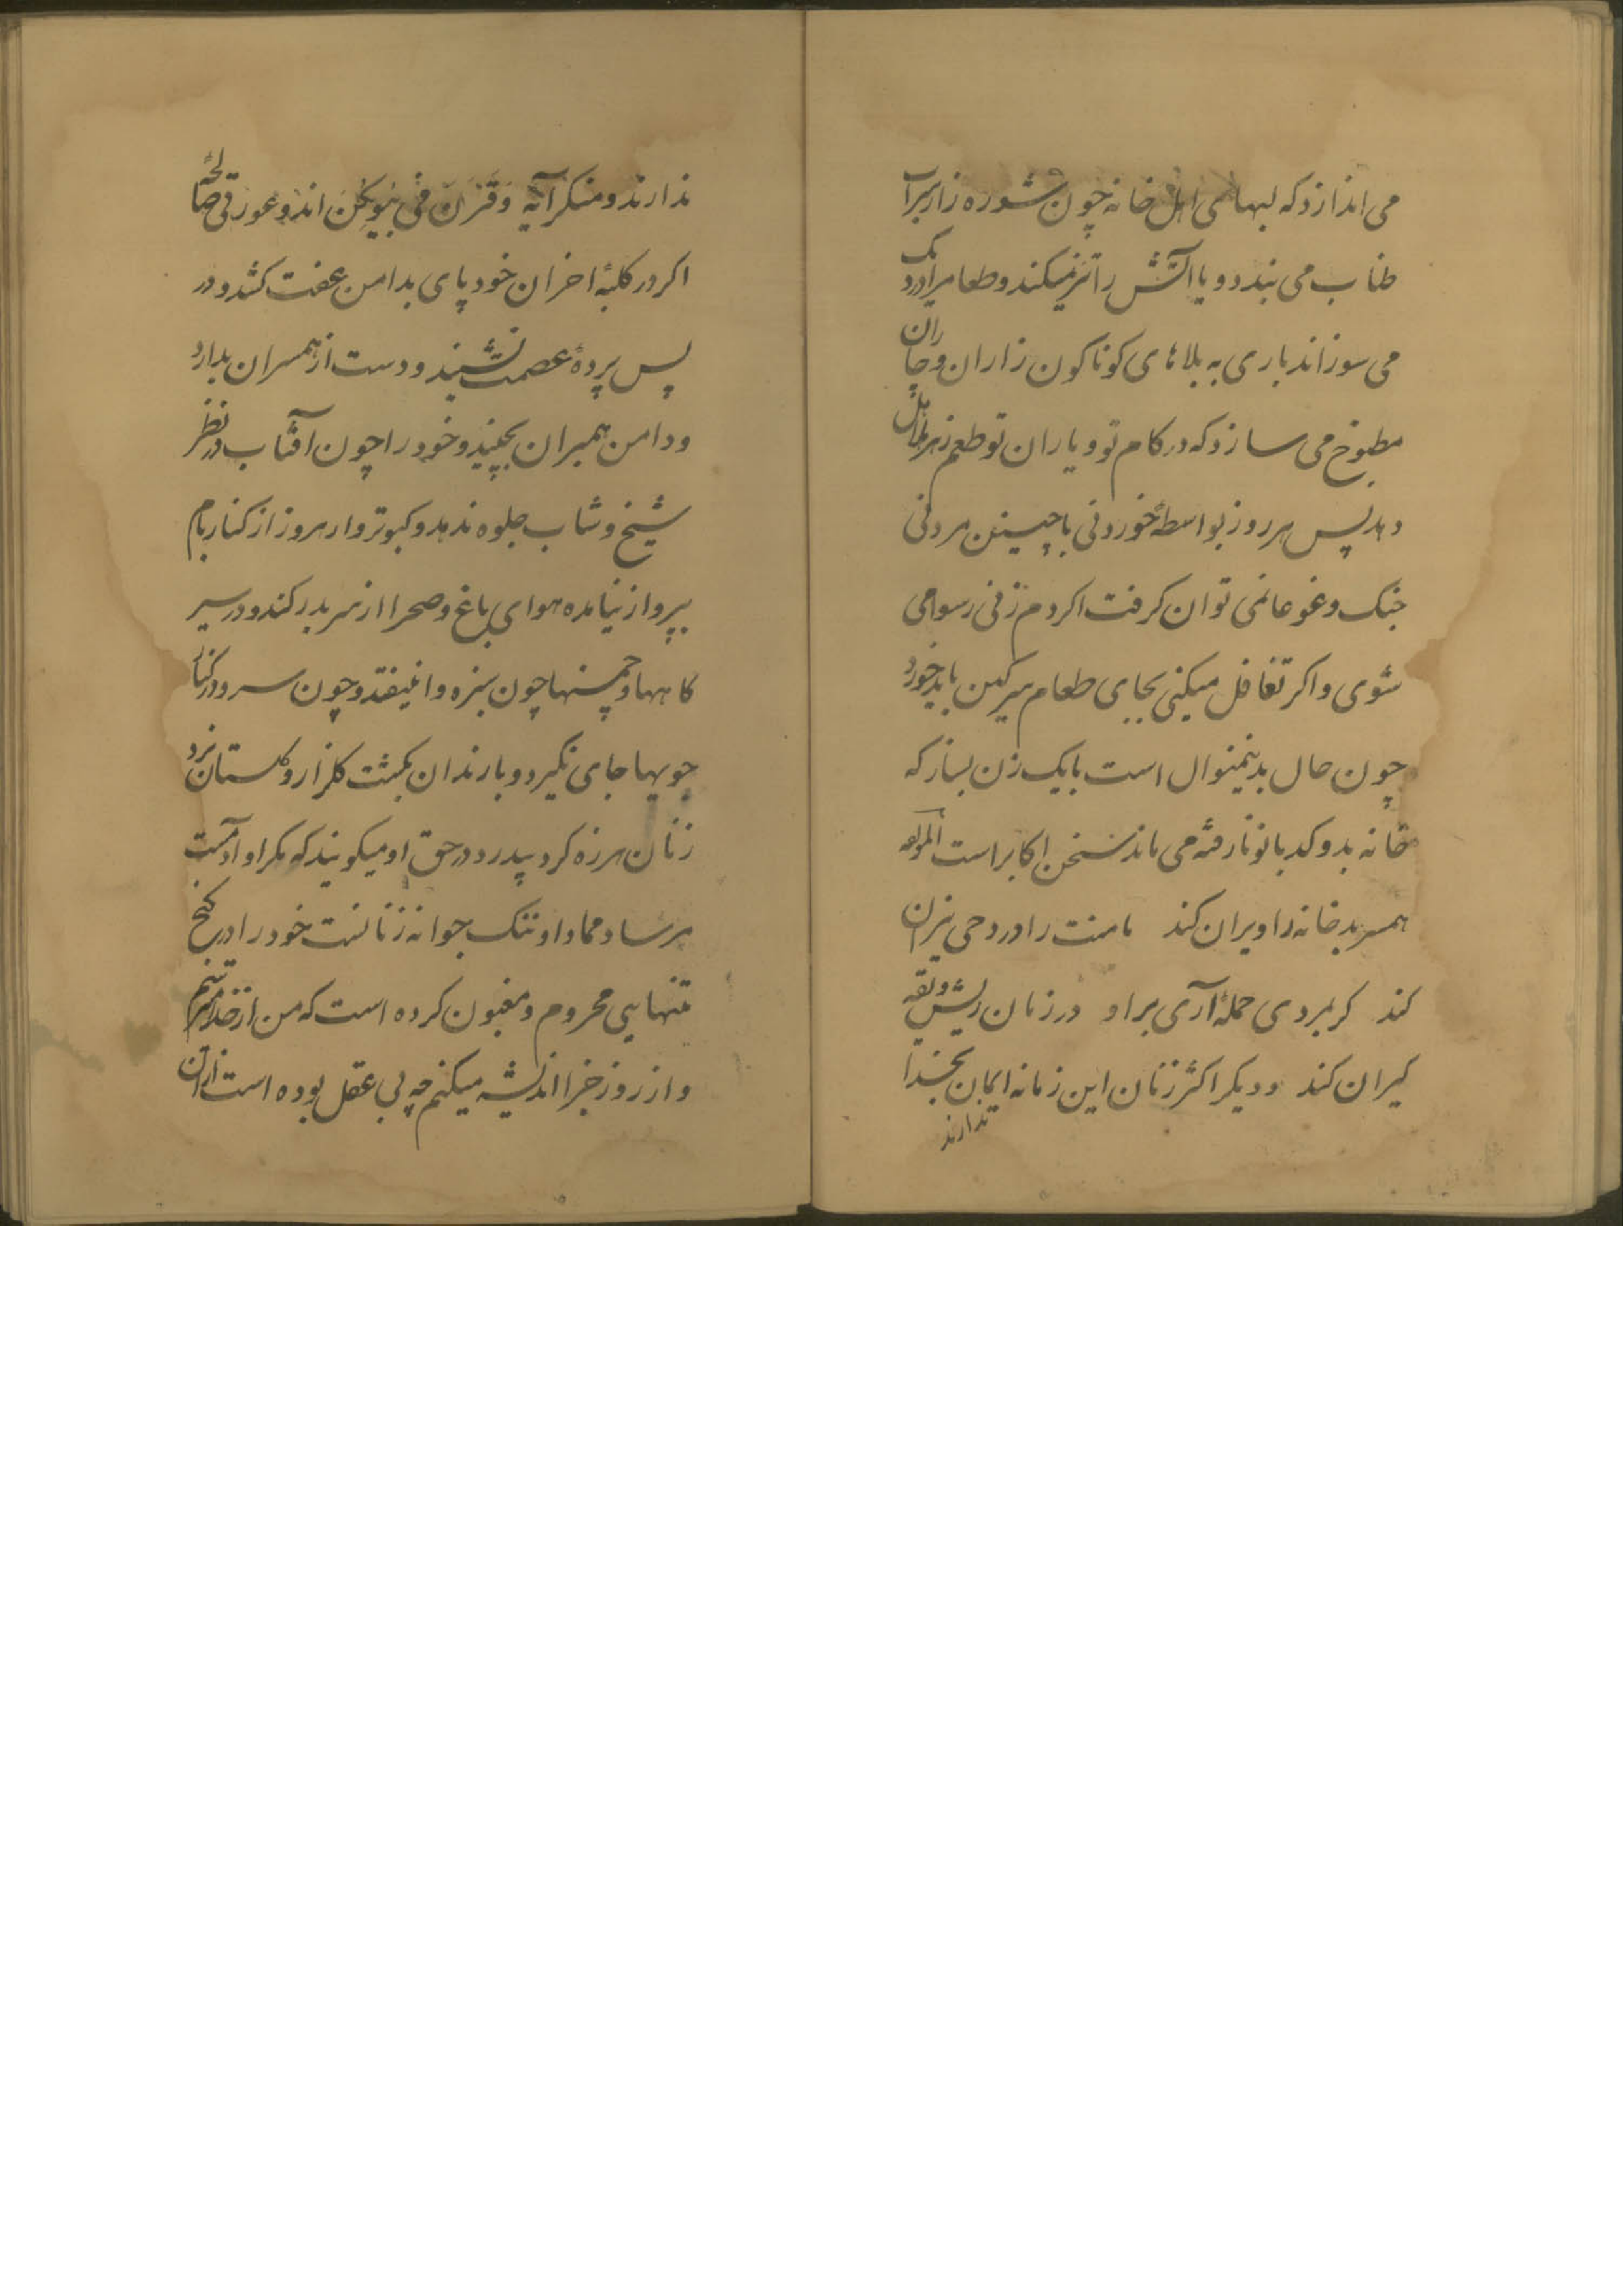 می اندازد که لبهای اهل خانه چون شوره زار برآ
طناب می بندد و یا آتش را تیز میکند و طعام را در دیک
می سوزاند باری به بلاهای کوناکون زاران و چا ران
مطبوخ می سازد که در کام تو و یاران تو طعم زهر هلاهل
دهد پس هر روز بواسطهٔ خوردنی با چنین مردنی
جنک و غوغا نمی توان کرفت اکر دم زنی رسوا می
شوی و اکر تغافل میکنی بجای طعام سرکین باید خورد
چون حال بدینمنوال است با یک زن بساز که
خانه بدو کدبانو نارفته می ماند سخن اکابر است لمولفه
همسر بد خانه را ویران کند مامنت را دردحی نیران
کند کر بمردی حملهٔ آری بر او در زمان ریش و یقه
کیران کند و دیکر اکثر زنان این زمانه ایمان بخدا
ندارند
ندارند و منکر آیه و قرن فی بیوتکن اند و عورتی صالحه
اکر در کلبهٔ احزان خود پای بدامن عفت کشد و در
پس پردهٔ عصمت نشیند و دست از همسران بدارد
و دامن همسران بچیند و خود را چون آفتاب در نظر
شیخ و شاب جلوه ندهد و کبوتر وار هر روز از کنار بام
بپرواز نیامده هوای باغ و صحرا از سر بدر کند و در سیر
کاهها و چمنها چون سبزه وا نیفتد و چون سرو در کنار
جویها جای نکیرد و با رندان بکشت کلزار و کلستان نرود
زنان هرزه کرد بیدرد در حق او میکویند که مکر او آدمست
مرساد مماد او ننک جوانه زنانست خود را در کنج
تنهایی محروم و مغبون کرده است که من از خدا میترسم
و از روز جزا اندیشه میکنم چه بی عقل بوده است آن زن